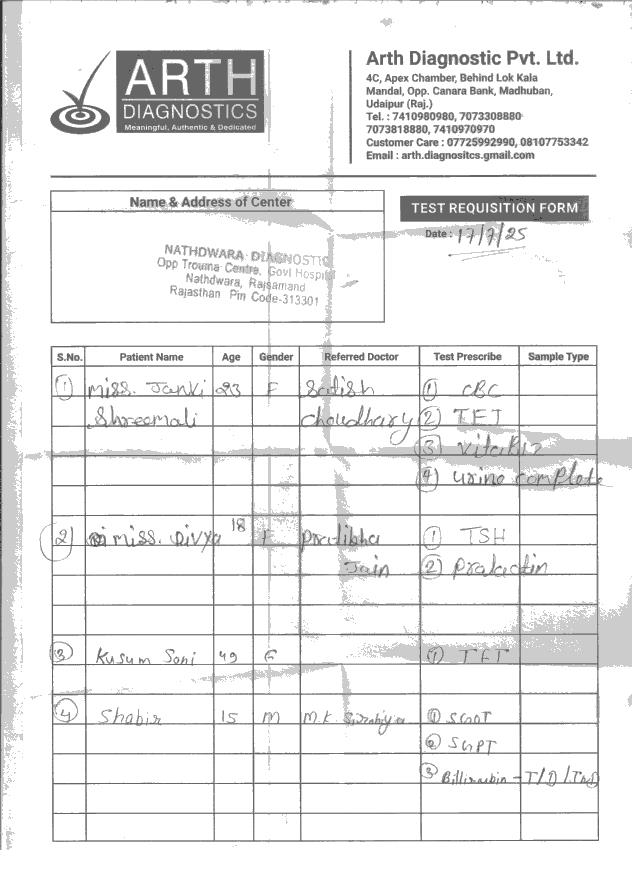 ARTH
DIAGNOSTICS
Meaningful, Authentic & Dedicated
Arth Diagnostic Pvt. Ltd.
4C, Apex Chamber, Behind Lok Kala
Mandal, Opp. Canara Bank, Madhuban,
Udaipur (Raj.)
Tel. : 7410980980, 7073308880
7073818880, 7410970970
Customer Care : 07725992990, 08107753342
Email : arth.diagnositcs.gmail.com
Name & Address of Center
NATHDWARA DIAGNOSTIC
Opp Trouma Centre, Govl Hospital
Nathdwara, Rajsamand
Rajasthan Pin Code-313301
TEST REQUISITION FORM
Date : 17/7/25
S.No. Patient Name Age Gender Referred Doctor Test Prescribe Sample Type
1 Miss. Janki 23 F Satish 1 CBC
Shreemali Choudhary 2 TFT
3 Vita B12
4 Urine complete
2 miss. Divya 18 F Pratibha 1 TSH
Jain 2 Prolactin
3 Kusum Soni 49 F 1 TFT
4 Shabir 15 M M.K. 1 SGOT
2 SGPT
3 Billirubin - T/D/Ind